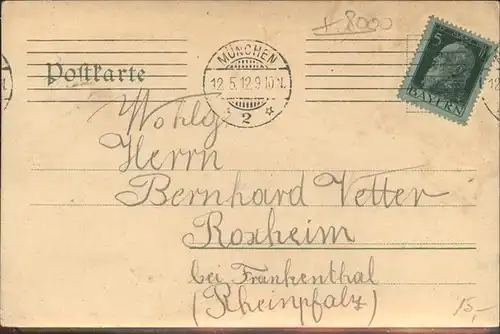 + 8000
MÜNCHEN
12.5.12.9-10V.
2
5
BAYERN
Postkarte
Wohlg.
Herrn
Bernhard Vetter
Roxheim
bei Frankenthal
(Rheinpfalz)
15,-